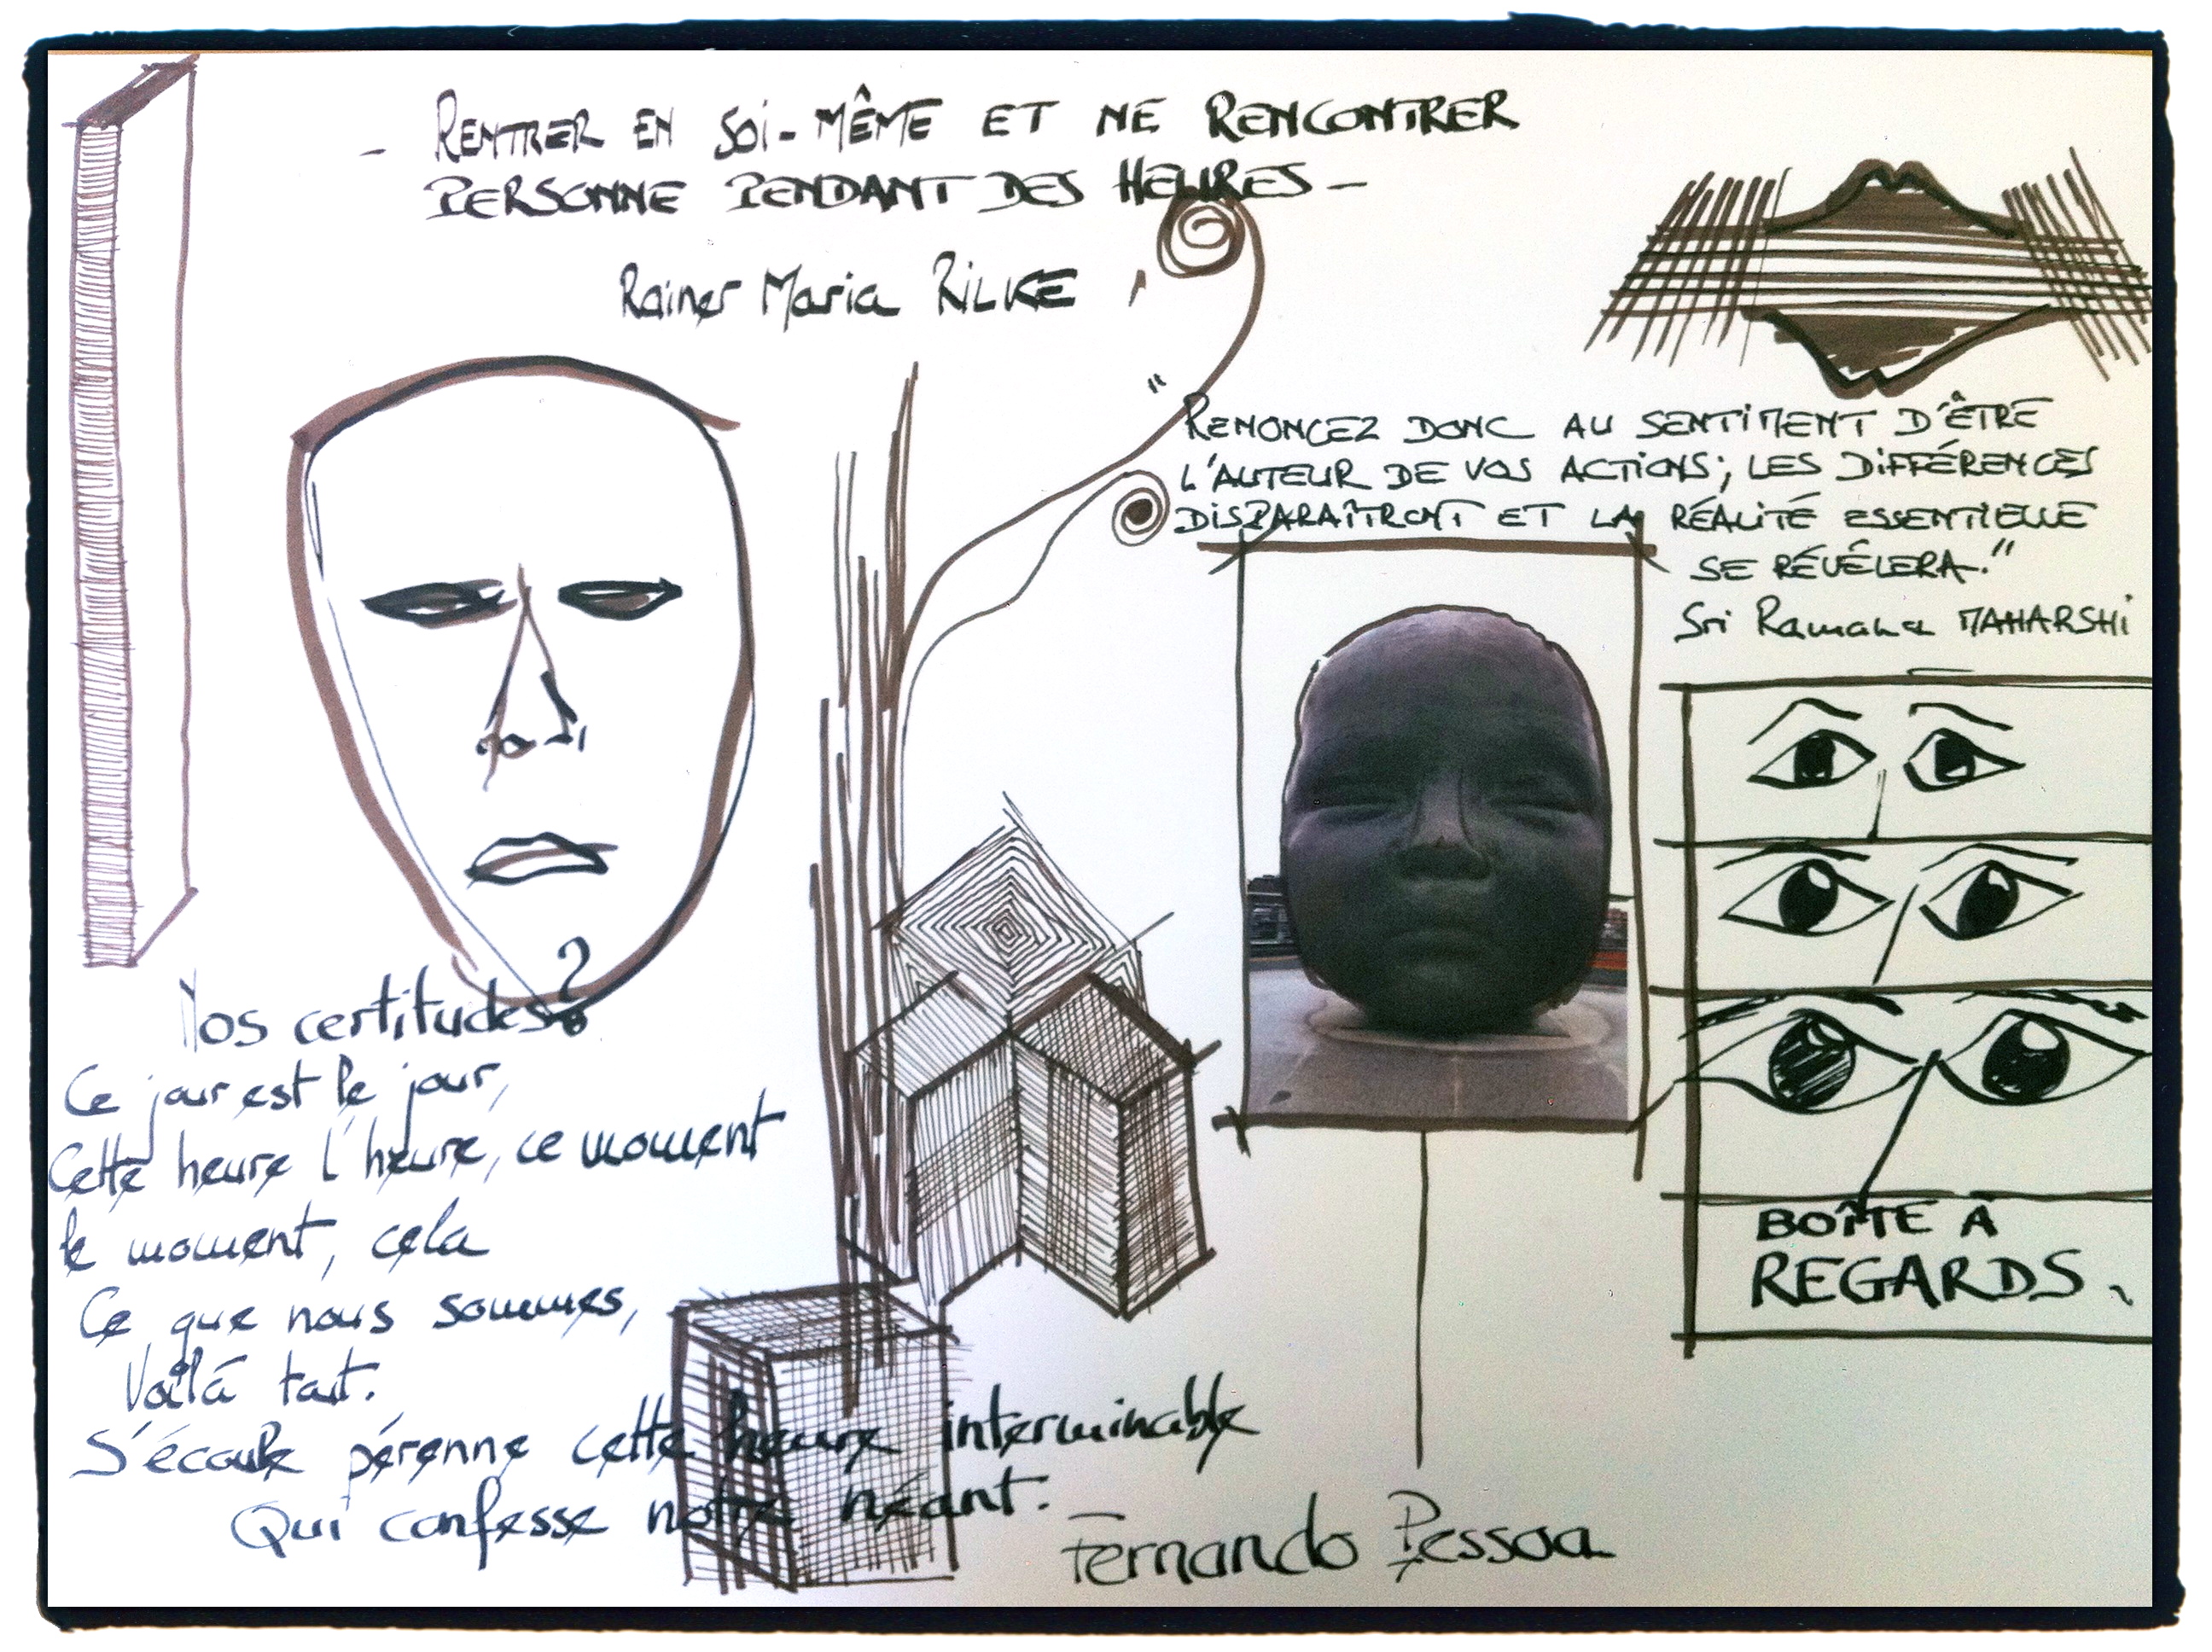 - RENTRER EN SOI-MÊME ET NE RENCONTRER
PERSONNE PENDANT DES HEURES -
Rainer Maria RILKE
"
RENONCEZ DONC AU SENTIMENT D'ÊTRE
L'AUTEUR DE VOS ACTIONS; LES DIFFÉRENCES
DISPARAÎTRONT ET LA RÉALITÉ ESSENTIELLE
SE RÉVÉLERA."
Sri Ramana MAHARSHI
BOÎTE À
REGARDS.
Nos certitudes?
Ce jour est le jour,
Cette heure l'heure, ce moment
le moment, cela
Ce que nous sommes,
Voilà tout.
S'écoule pérenne cette heure interminable
Qui confesse notre néant.
Fernando Pessoa